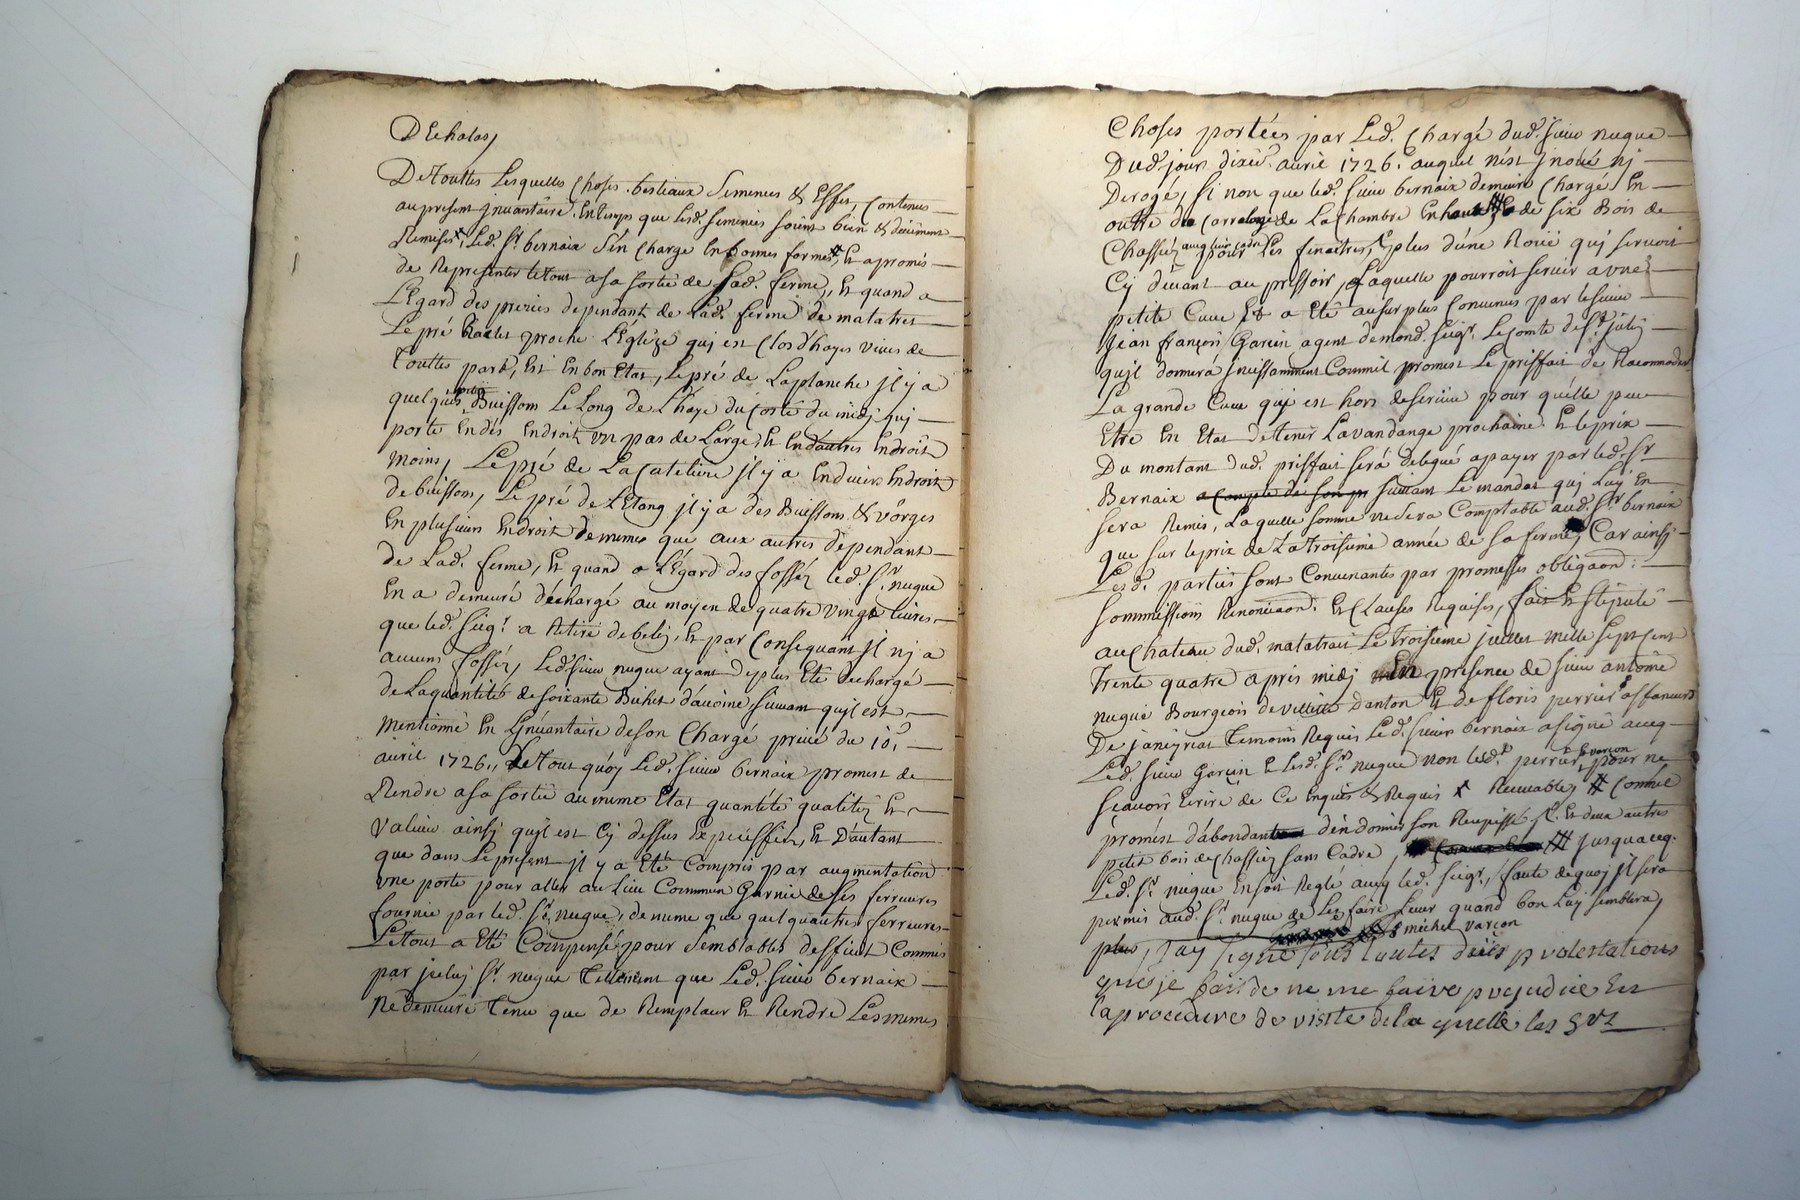 D Echalas,
De Touttes Lesquelles Choses bestiaux Semences & Effets, Contenus
au present Jnvantaire, En temps que Lesd. semences soient bien & deüement
Remises Led. Sr. bernaix S'en Charge En bonnes formes, Et a promis
de Representer letout a sa sortie de Lad. ferme,, Et quand a
L'Egard des preries dependant de Lad. ferme de matatret
Le pré proche L'Eglize qui est Clos d'hayes vives de
toutte part, Est En bon Etat, Le pré de Laplanche il y a
quelques petits Buissons Le Long de L'haye du Costé du midj quj
porte En des Endroit un pas de Large, Et En dautres Endroit
moins, Le pré de La Cateline il y a En divers Endroit
de buissons, Le pré de L'Etang il y a des Buissons & vorges
En plusieurs Endroit de mesme que aux autres dependant
de Lad. ferme, Et quand a L'Egard des fossés led. Sr. nugue
En a demeuré déchargé au moyen de quatre vingt livres
que led. seigr. a Retiré de Et par Consequant Il nj a
aucuns fossés, Led. sieur nugue ayant de plus Eté dechargé
de Laquantité de soixante Bichet d'avoine, suivant qu'il est
mentionné En Lnvantaire de son Chargé privé du 10e.
avril 1726,, De Tout quoy Led. sieur bernaix promest de
Rendre a sa sortie au mesme Etat quantité qualités Et
valeur ainsj qu'il est Cy dessus Expeciffiés, Et D'autant
que dans Le present il y a Eté Compris par augmentation
une porte pour aller au Lieu Commun Garnie de ses ferrures
fournie par led. Sr. nugue, de mesme que quelquautres ferrures
Letout a Eté Compensé pour Semblables deffient Commis
par jceluj Sr. nugue Tellement que Led. sieur bernaix
Nedemeure tenu que de Remplacer Et Rendre Lesmesmes
Choses portées par Led. Chargé dud. sieur nugue
Dud. jour dixie. avril 1726. auquel n'est jnové nj
Derogé, Si non que led. sieur bernaix demeure Chargé En
outre du de La Chambre En haut de six Bois de
Chassiez avec leur cadre pour Les fenaitres, Et plus d'une Roüe quj servoit
Cy devant au pressoir, Laquelle pourroit servir a une
petite Cuve Et a Eté au surplus Convenus par le sieur
Jean françois Garcin agent de mond. seigr. Le Comte de St. julin
qu'il donnerá jncessamment Commil promest Le prisfait de Racommoder
La grande Cuve quj est hors de service pour quélle peu
Etre En Etat de tenir La vandange prochaine Et le prix
Du montant dud. prisfait serà delegué a payer par led. Sr
Bernaix suivant Le mandat quj Luy En
sera Remis, Laquelle somme ne sera Comptable aud. Sr. bernaix
que sur le prix de La troisieme année de sa ferme, Car ainsj
Lesd. parties sont Convenantes par promesses obligaõn.
Sommissions Renonciaõn. Et Clauses Requises, fait Et stipulé
au Chateau dud. matatrait Le troisieme juillet mille sept sent
trente quatre apres midj En presence de sieur antoine
nugue Bourgeois de d'anton Et de floris perrier affaneurs
De janeyriat Temoins Requis Led. sieur bernaix a signé avecq
Led. sieur Garcin & Lesd. Srs. nugue non led. perrier Et varcon pour ne
sçavoir Ecrire de Ce Enquis & Requis Recevables Comme
promest d'abondant d'en donner son Recepissé, Et deux autres
petit bois de Chassiez sans Cadre, jusquaceq.
Led. Sr. nugue En soit Reglé avecq led. seigr., faute dequoj jl sera
permis aud. Sr. nugue de Les faire Lever quand bon Luy semblera,
michel varcon
plus, Jay signé sous toutes dües protestations
que je fais de ne me faire prejudice En
la procedure de visite de la quelle